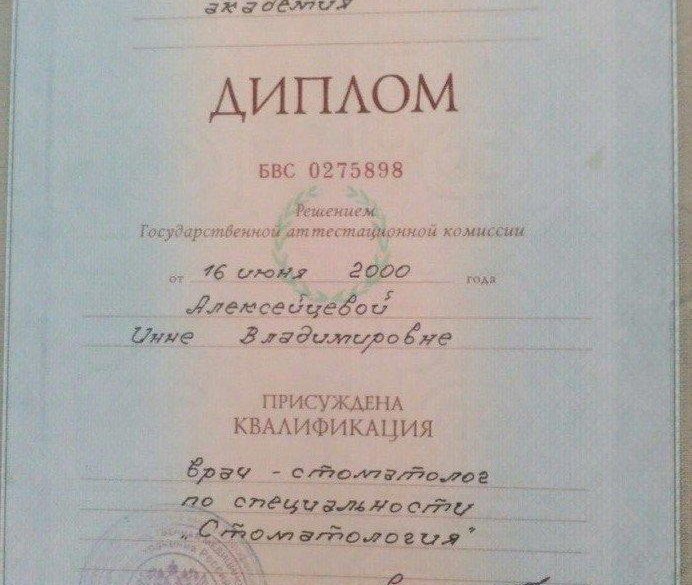 академия
ДИПЛОМ
БВС 0275898
Решением
Государственной аттестационной комиссии
от 16 июня 2000 года
Алексейцевой
Инне Владимировне
ПРИСУЖДЕНА
КВАЛИФИКАЦИЯ
врач - стоматолог
по специальности
„Стоматология"